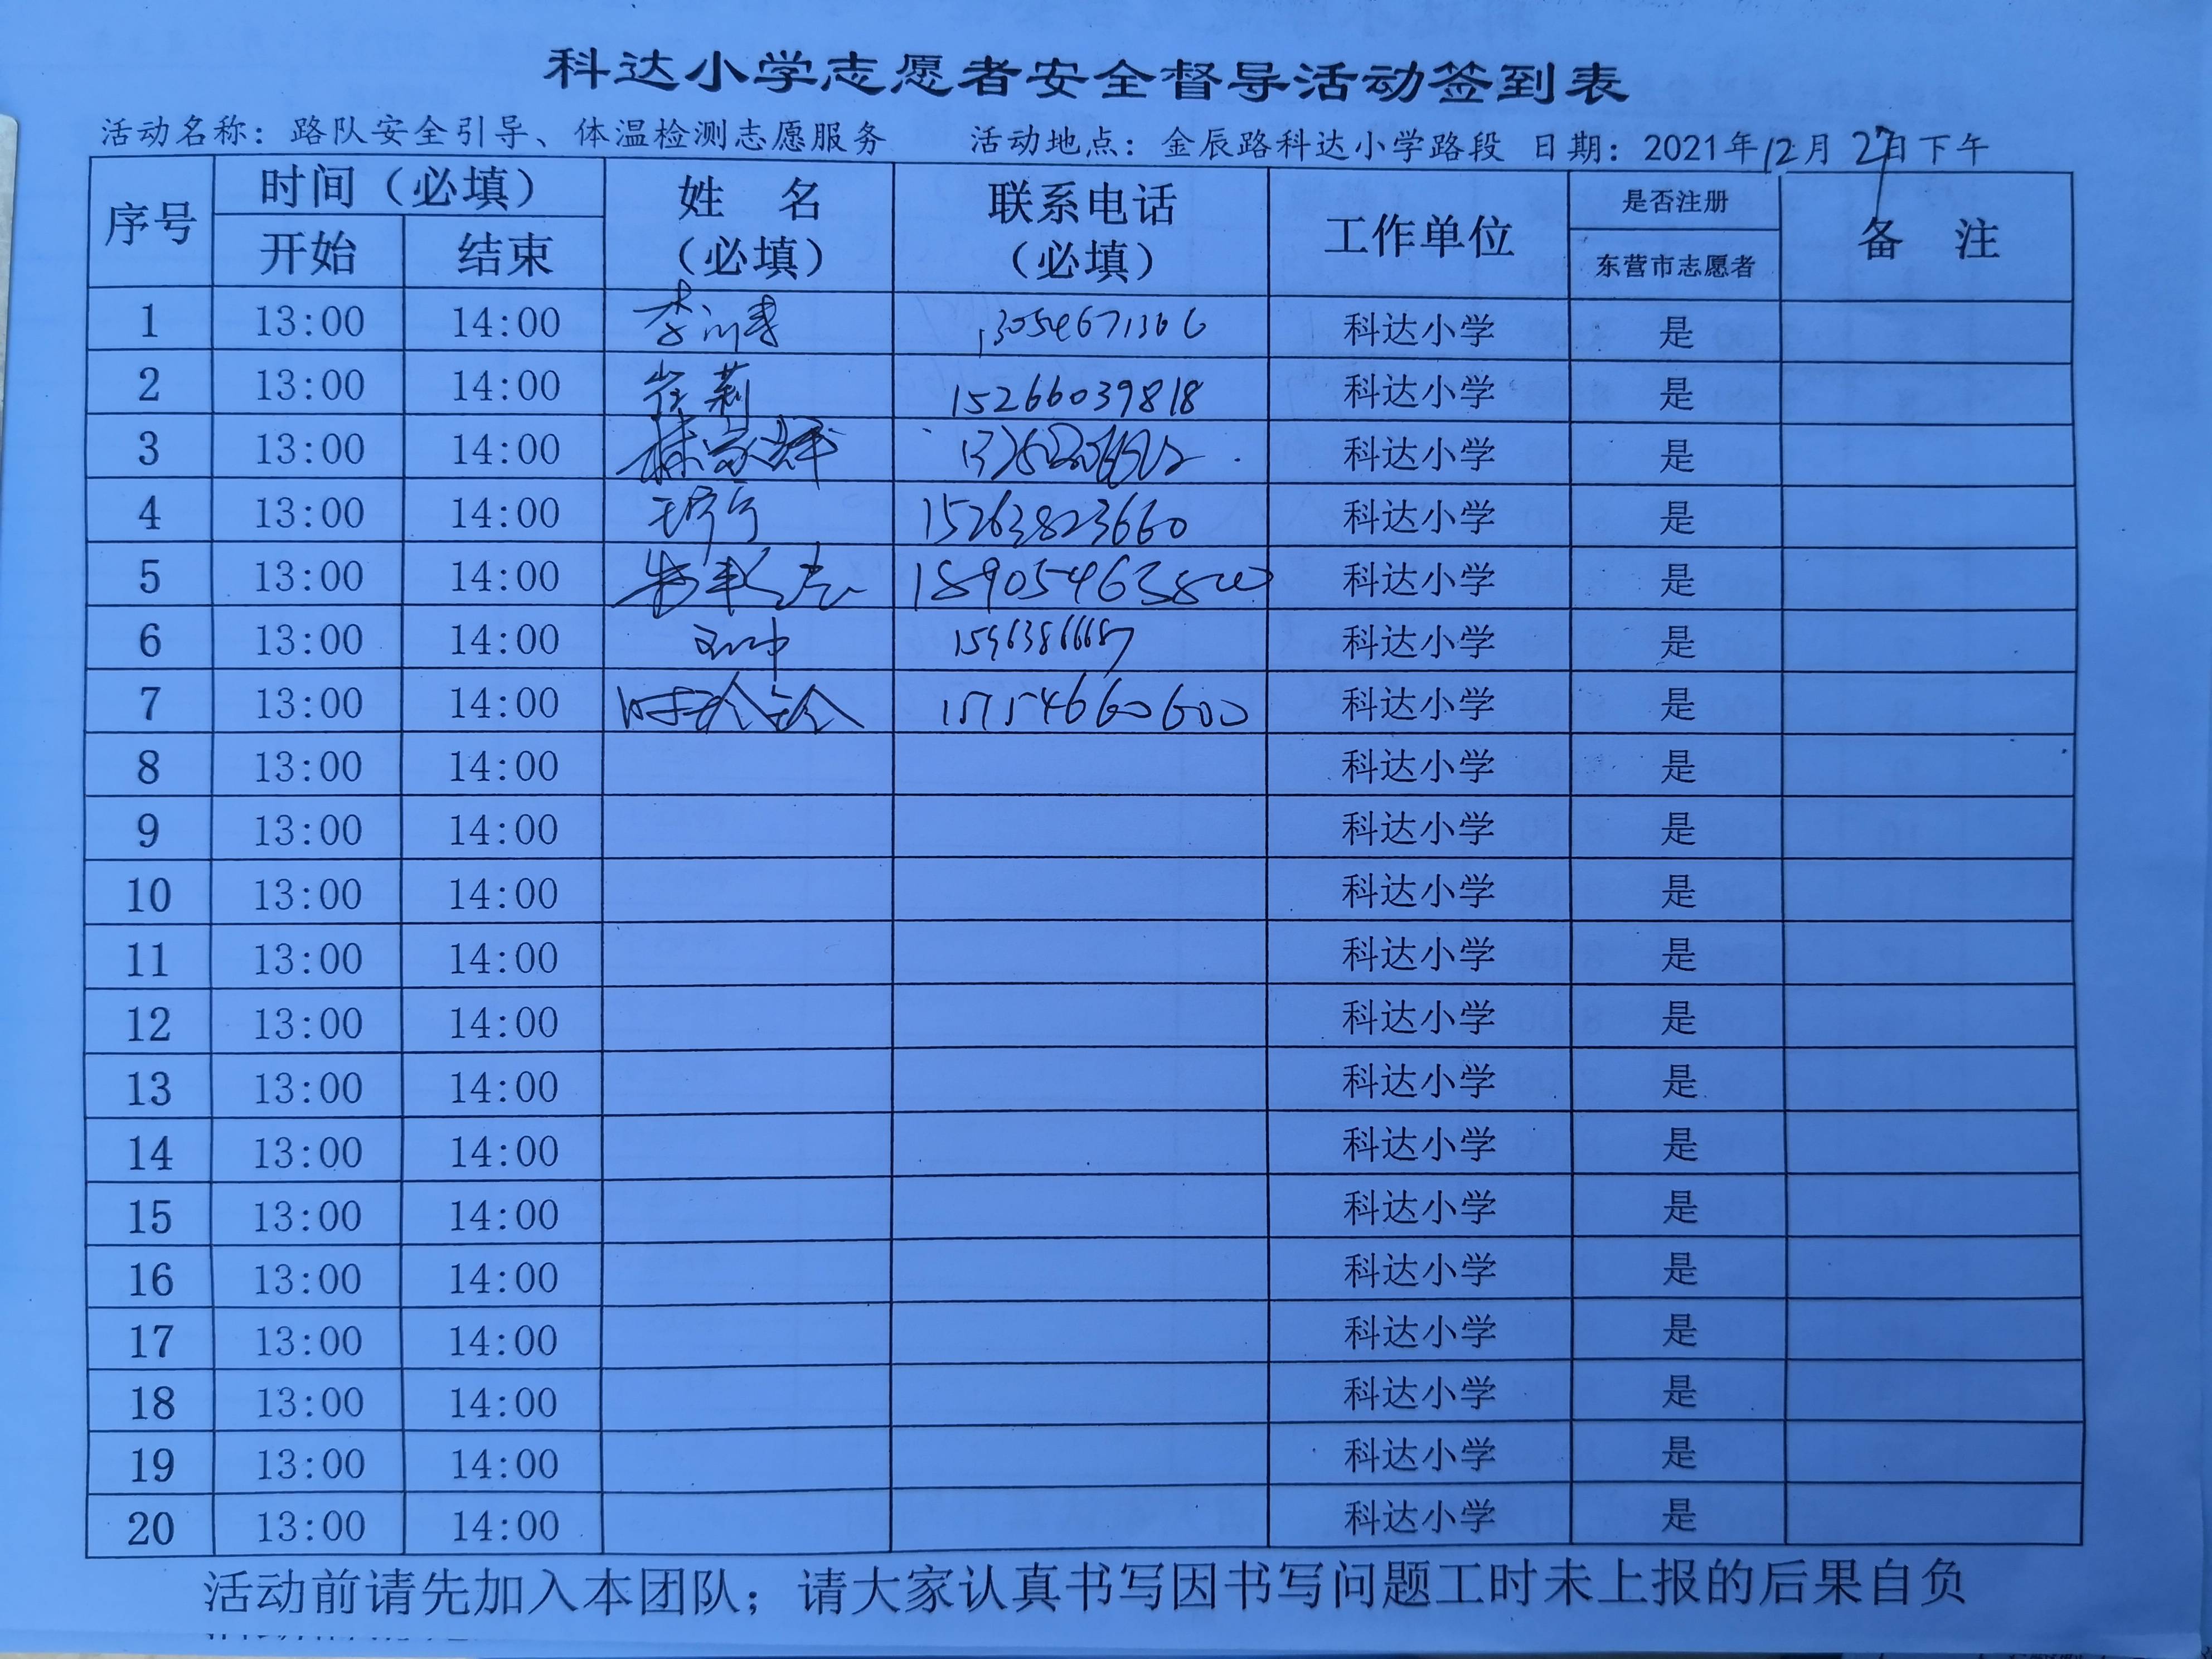 科达小学志愿者安全督导活动签到表
活动名称：路队安全引导、体温检测志愿服务 活动地点：金辰路科达小学路段 日期：2021年12月27日下午
序号 时间（必填） 姓 名（必填） 联系电话（必填） 工作单位 是否注册 备 注
开始 结束 东营市志愿者
1 13:00 14:00 13054671366 科达小学 是
2 13:00 14:00 崔莉 15266039818 科达小学 是
3 13:00 14:00 科达小学 是
4 13:00 14:00 15263823660 科达小学 是
5 13:00 14:00 科达小学 是
6 13:00 14:00 15963866687 科达小学 是
7 13:00 14:00 时玲玲 15154660600 科达小学 是
8 13:00 14:00 科达小学 是
9 13:00 14:00 科达小学 是
10 13:00 14:00 科达小学 是
11 13:00 14:00 科达小学 是
12 13:00 14:00 科达小学 是
13 13:00 14:00 科达小学 是
14 13:00 14:00 科达小学 是
15 13:00 14:00 科达小学 是
16 13:00 14:00 科达小学 是
17 13:00 14:00 科达小学 是
18 13:00 14:00 科达小学 是
19 13:00 14:00 科达小学 是
20 13:00 14:00 科达小学 是
活动前请先加入本团队；请大家认真书写因书写问题工时未上报的后果自负